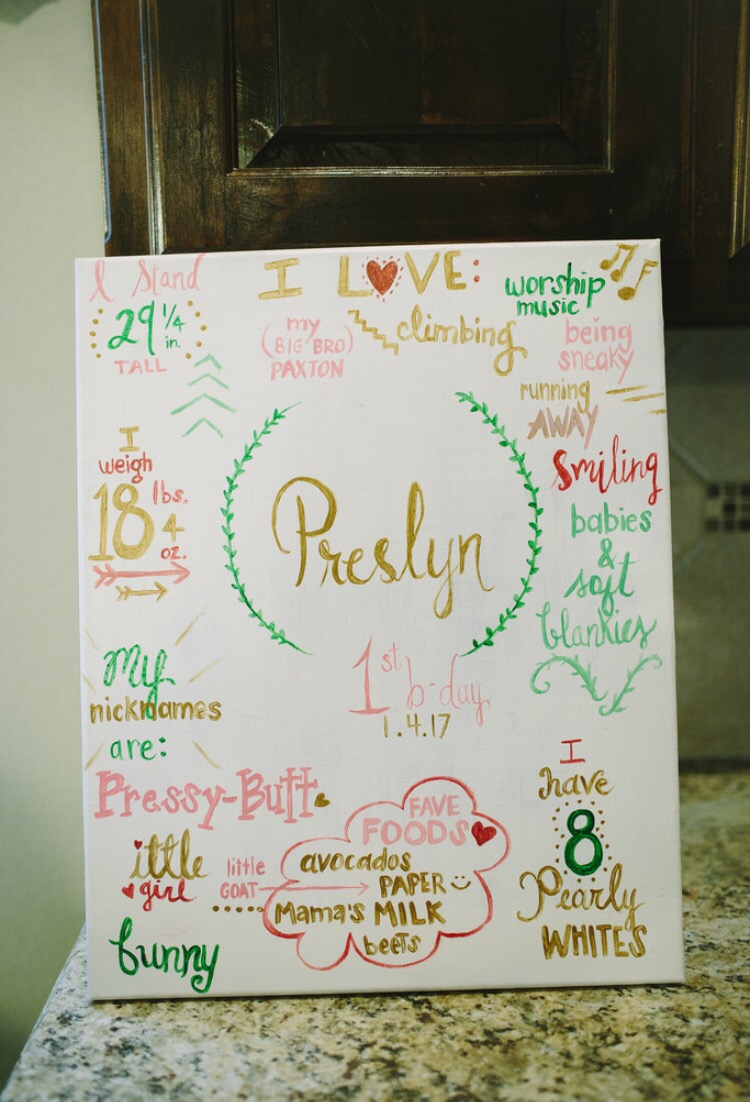 I Stand
29 1/4
in.
TALL
I LOVE:
my
(BIG BRO)
PAXTON
climbing
worship
music
being
sneaky
running
AWAY
smiling
babies
&
soft
blankies
I
weigh
18 lbs.
4
oz.
Preslyn
1st b-day
1.4.17
My
nicknames
are:
Pressy-Butt
ittle
girl
bunny
little
GOAT
FAVE
FOODS
avocados
PAPER
Mama's MILK
beets
I
have
8
Pearly
WHITES